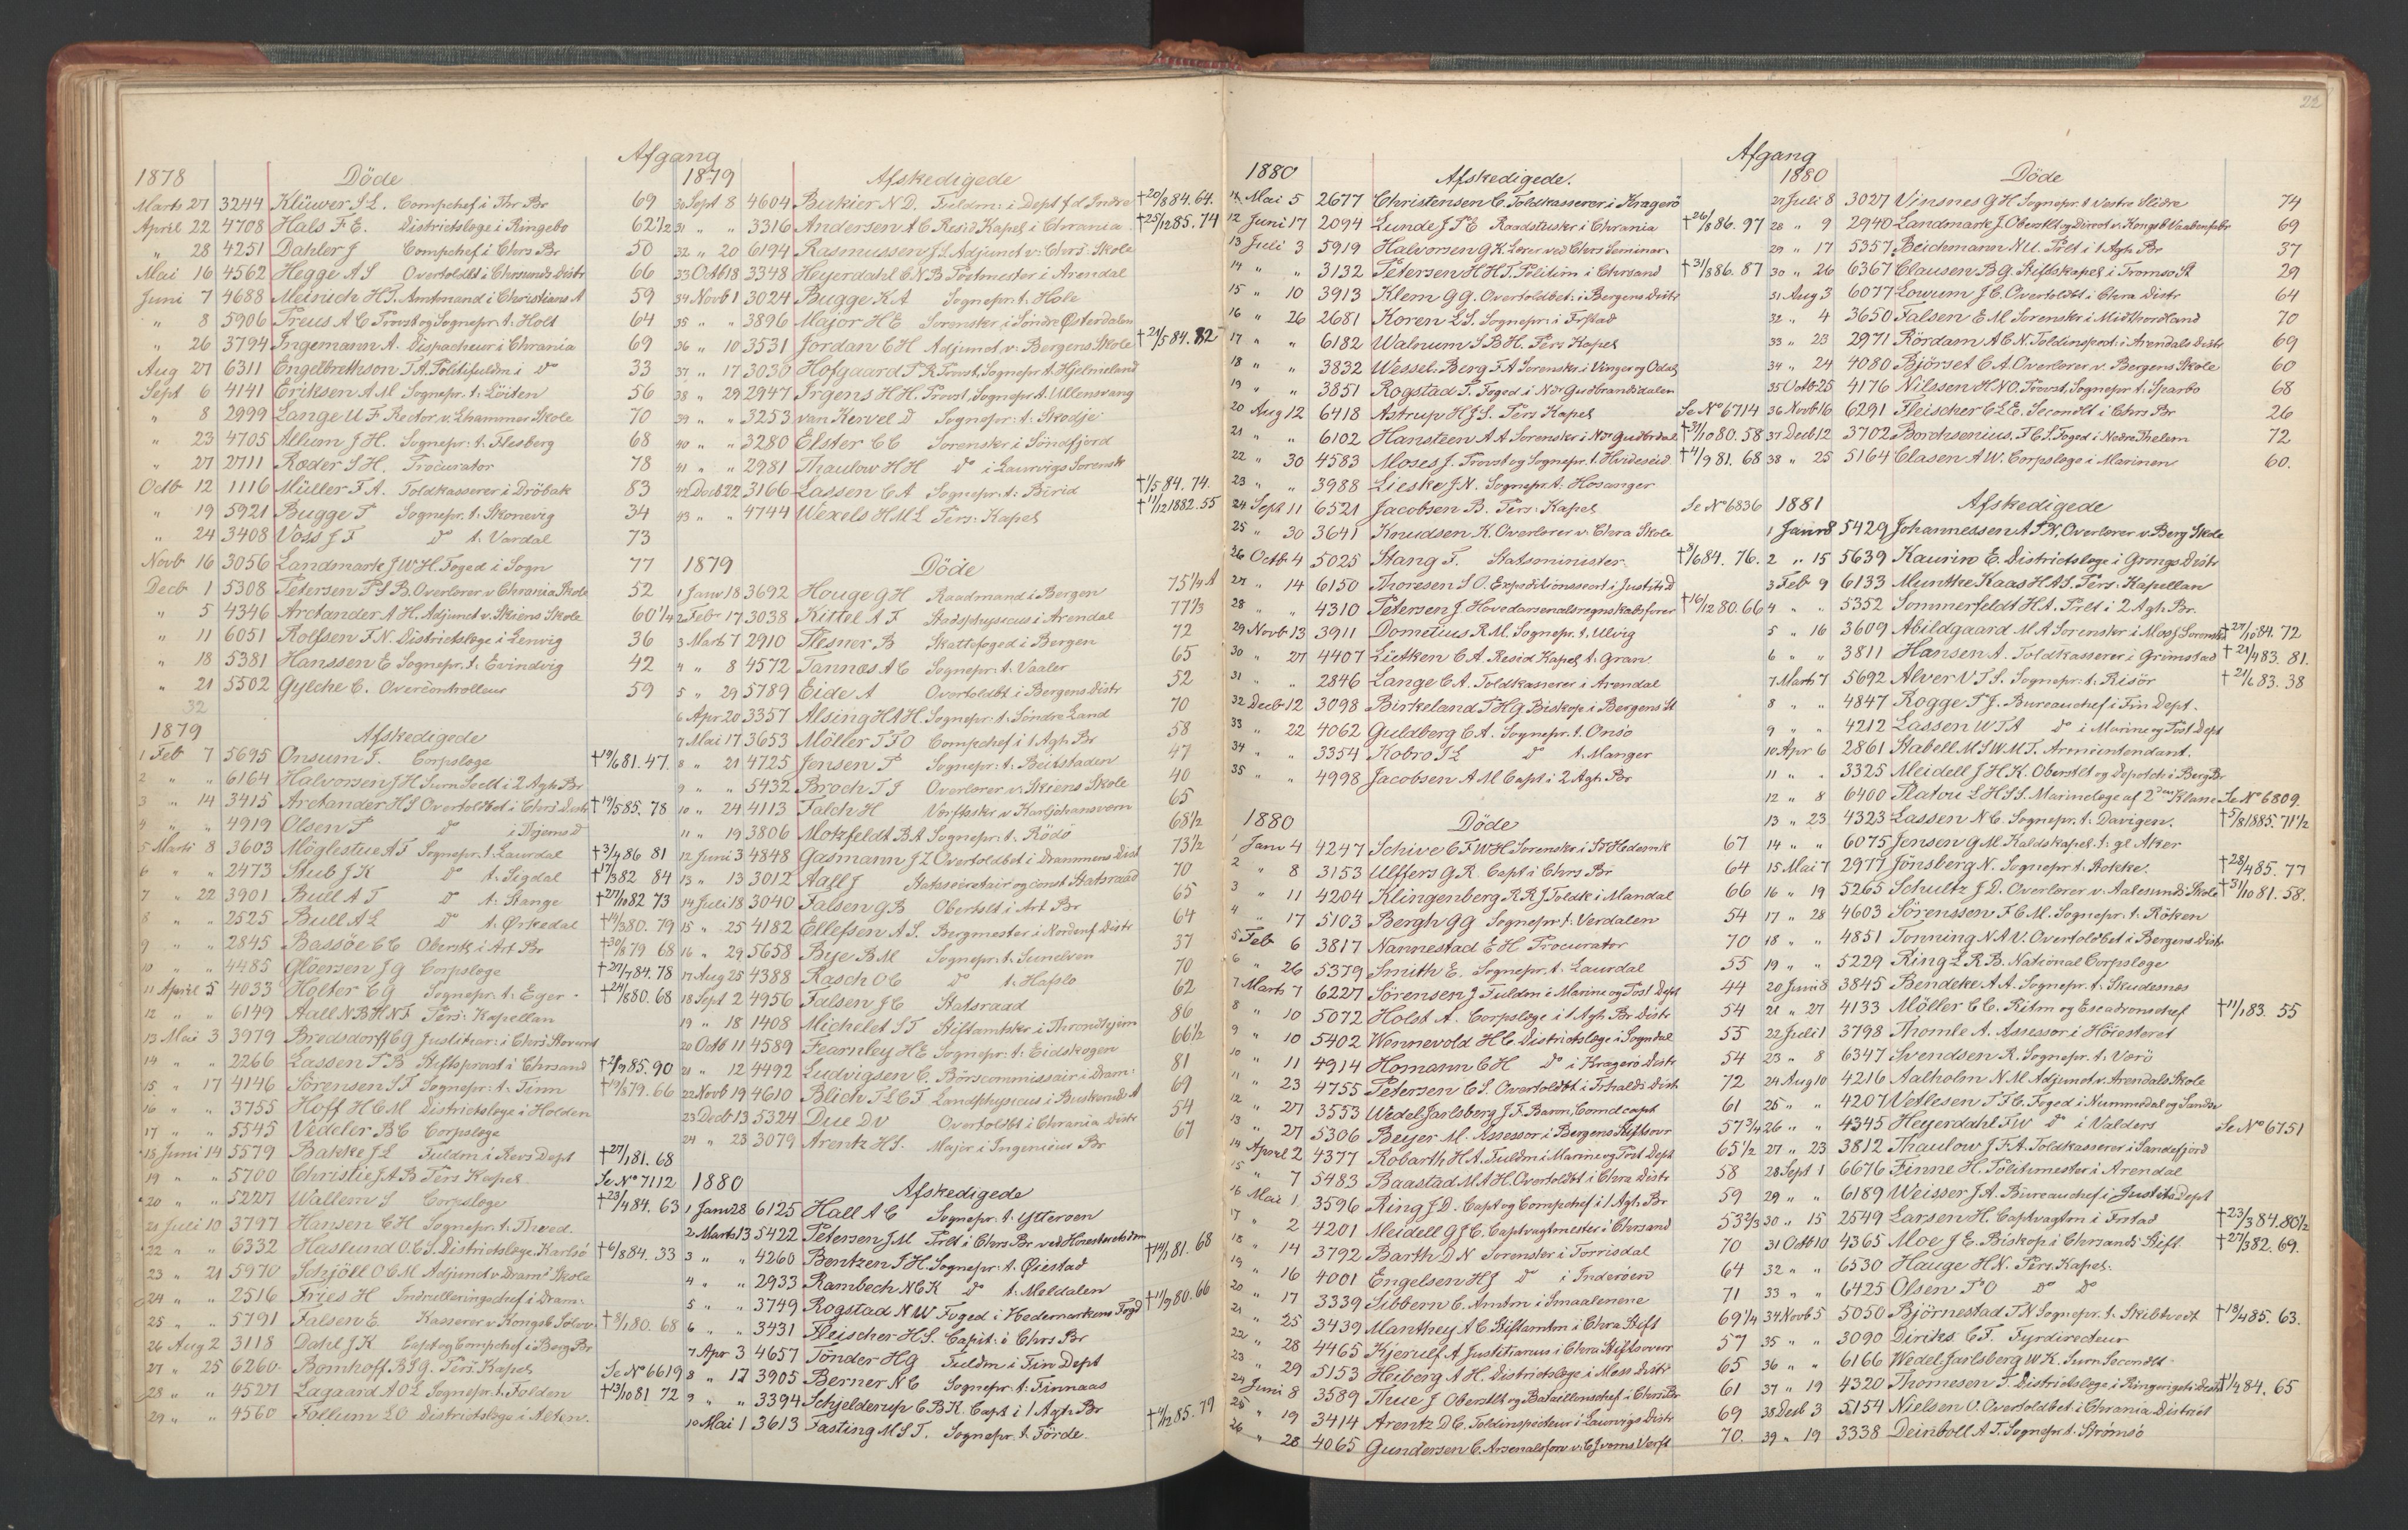 Afgang
1878
Döde
Marts 27 3244 Klüwer S L. Compchef i Thr Br 69
April 22 4708 Hals F E. Districtslæge i Ringebo 62 1/2
" 28 4251 Dahler J Compchef i Chrs Br 50
Mai 16 4562 Hegge A S Overtoldbt i Chrsunds Distr 66
Juni 7 4688 Meinich H T. Amtmand i Christians A 59
" 8 5906 Preus A C Provst og Sognepr. t. Holt 64
" 26 3794 Ingemann A. Dispacheur i Chrania 69
Aug 27 6311 Engelbrethson T A. Politifuldm i do 33
Sept 6 4141 Eriksen A M Sognepr. t. Löiten 56
" 8 2999 Lange U F. Rector v. Lhammer Skole 70
" 23 4705 Allum J H. Sognepr: t. Flesberg 68
" 27 2711 Röder S H. Procurator 78
Octb 12 1116 Müller F A. Toldkasserer i Dröbak 83
" 19 5921 Bugge P Sognepr. t. Skonevig 34
" 24 3408 Voss J F do t. Vardal 73
Novb 16 3056 Landsmark J W H. Foged i Sogn 77
Decb 1 5308 Petersen P S B. Overlærer v Chrania Skole 52
" 5 4346 Arctander A H. Adjunct v. Skiens Skole 60 1/4
" 11 6051 Rolfsen F N. Districtslæge i Lenvig 36
" 18 5381 Hanssen E Sognepr. t. Evindvig 42
" 21 5502 Gylche C. Overcontrolleur 59
32
1879
Afskedigede
1 Feb 7 5695 Onsum J. Corpslæge †19/6 81. 47.
2 " " 6164 Halvorsen J H Surn Seclt i 2 Agh Br
3 " 14 3415 Arctander H S Overtoldbet i Chrs Distr †19/5 85. 78
4 " " 4919 Olsen P do i Thjems D
5 Marts 8 3603 Möglestue A T Sognepr. t. Laurdal †3/4 86 81
6 " " 2473 Stub J K do t. Sigdal †17/3 82 84
7 " 22 3901 Bull A T do t. Stange †27/10 82 73
8 " " 2525 Bull A L do t. Ørkedal †14/3 80. 79
9 " " 2845 Bassöe C C Oberstl i Art Br †30/8 79 68
10 " " 4485 Glöersen J G Corpslæge †27/7 84. 78
11 April 5 4033 Holter C G Sognepr. t. Eger. †24/8 80. 68
12 " " 6149 Aall N B H N F Pers: Kapellan
13 Mai 3 3979 Bredsdorff C G Justitiar: i Chrs Stoveret
14 " " 2266 Lassen P B Stiftsprovst i Chrsand †2/9 85. 90
15 " 17 4146 Sörensen S T Sognepr: t. Tinn †19/8 79. 66
16 " " 3755 Hoff H C M Districtslæge i Holden
17 " " 5545 Vedeler B C Corpslæge
18 Juni 14 5579 Bakke J L Fuldm i Revs Dept †27/1 81. 68
19 " " 5700 Christie J A B Pers Kapel Se No 7112
20 " " 5227 Wallem S Corpslæge †23/4 84. 63
21 Juli 10 3797 Hansen C H Sognepr. t. Thved.
22 " " 6332 Haslund O. E S. Districtslæge Karlsö †6/8 84. 33
23 " 21 5970 Schjöll O C M. Adjunct v Dram Skole
24 " " 2516 Fries H Indrulleringschef i Dram:
25 " " 5791 Falsen E Kasserer v Kongsb Sölvv: †8/1 80. 68
26 Aug 2 3118 Dahl J K Capt og Compchef i Berg Br
27 " 25 6260 Bomhoff B S G. Pers. Kapel Se No 6619
28 " " 4527 Lagaard A O L Sognepr. t. Folden †13/10 81. 72
29 " " 4560 Follum L O Districtslæge i Alten.
1879
Afskedigede
30 Sept 8 4604 Birkier N D. Fuldm: i Dept f d Indre †20/8 84. 64.
31 " " 3316 Andersen A C Resid Kapel i Chrania †25/12 85. 74
32 " 20 6194 Rasmussen J S. Adjunct v: Chrs: Skole
33 Octb 18 3348 Heyerdahl C N B Postmester i Arendal
34 Novb 1 3024 Bugge K A Sognepr: t. Hole
35 " " 3896 Major H E Sorenskr i Söndre Österdalen
36 " 10 3531 Jordan C H Adjunct v: Bergens Skole †21/5 84. 82
37 " 17 3030 Hofgaard P R Provst, Sognepr t. Hjelmeland
38 " 29 2947 Irgens H H. Provst, Sognepr t. Ullensvang
39 " " 3253 van Kervel D Sognepr: t. Skodje
40 " " 3280 Elster C C Sorenskr i Söndfjord
41 " " 2981 Thaulow H H do i Laurvigs Sorensk
42 Decb 22 3166 Lassen C A Sognepr: t: Birid †1/5 84. 74.
43 " " 4744 Wexels H M L Pers: Kapel †11/12 1882. 55
1879
Döde
1 Janv 18 3692 Houge G H Raadmand i Bergen 75 1/4 A
2 Febr 17 3038 Kittel A F Stadsphysicus i Arendal 77 1/3
3 Marts 7 2910 Flesner B Skattefoged i Bergen 72
4 " 8 4572 Tannæs A C Sognepr: t: Vaaler 65
5 " 29 5789 Eide A Overtoldbt i Bergens Distr 52
6 Apr 20 3357 Alsing H A H. Sognepr: t: Söndre Land 70
7 Mai 17 3653 Möller P F O Compchef i 1 Agh Br 58
8 " 21 4725 Jensen P Sognepr: t: Beitstaden 47
9 " " 5432 Broch T J Overlærer v. Skiens Skole 40
10 " 24 4113 Falch H Værftsskr v Karljohansværn 65
11 " 19 3806 Motzfeldt B A Sognepr: t. Rödö 68 1/2
12 Juni 3 4848 Gasmann J L Overtoldbet i Drammens Dist 73 1/2
13 " 13 3012 Aall J Statssecretair og const Statsraad 70
14 Juli 18 3040 Falsen G B Oberstlt i Art Br 65
15 " 25 4182 Ellefsen A S. Bergmester i Nordenf Distr 64
16 " 29 5658 Bye B M Sognepr. t. Sunelven 37
17 Aug 25 4388 Rasch O C do t. Hafslo 70
18 Sept 2 4956 Falsen J C Statsraad 62
19 " 18 1408 Michelet S T Stiftamtskr i Throndhjem 86
20 Octb 11 4589 Fearnley H E Sognepr: t: Eidskogen 66 1/2
21 " 12 4492 Ludvigsen C. Börscommissair i Dram: 81
22 Novb 19 4610 Blich T L C F Landphysicus i Buskeruds A 69
23 Decb 13 5324 Due D V Overtoldbt i Chrania Distr 54
24 " 23 3079 Arentz H S. Major i Ingeniör Br 67
1880
Afskedigede
1 Janv 28 6125 Hall A C Sognepr. t. Ytteroen
2 Marts 13 5422 Petersen J M Prlt i Chrs Br ved Honoretets dom
3 " " 4260 Bentzen J H. Sognepr. t. Øiestad †14/1 81. 68
4 " " 2933 Rambech N C K do t. Meldalen
5 " " 3749 Rogstad N W Foged i Hedemarkens Fogd †11/9 80. 66
6 " " 3431 Fleischer H S. Capit: i Chrs Br
7 Apr 3 4657 Tönder H G Fuldm i Fin Dept
8 " 17 3905 Berner N C Sognepr. t. Finnaas
9 " " 3394 Schjelderup C B K. Capt i 1 Agh Br
10 Mai 1 3613 Fasting M S T. Sognepr. t. Förde †4/12 85. 79
22
Afgang
1880
Afskedigede.
11 Mai 5 2677 Christensen C. Toldkasserer i Kragerö
12 Juni 17 2094 Lunde J P E Raadstuskr i Chrania †26/8 86. 97
13 Juli 3 5919 Halvorsen G K Lærer ved Chrs Seminar
14 " " 3132 Petersen H H T. Politim i Chrsand †31/8 86. 87
15 " 10 3913 Klem G G. Overtoldbet: i Bergens Distr
16 " 26 2681 Koren L S. Sognepr. i Frstad
17 " " 6182 Walnum S B H. Pers Kapel
18 " " 3832 Wessel-Berg F A Sorenskr i Vinger og Odal
19 " " 3851 Rogstad P. Foged i Ndr Gudbrandsdalen
20 Aug 12 6418 Astrup H J S. Pers Kapel Se No 6714
21 " " 6102 Hansteen A A Sorenskr i Ndr Gudbrdal †31/10 80. 58
22 " 30 4583 Moses J. Provst og Sognepr. t. Hvideseid †4/9 81. 68
23 " " 3988 Lieske J N. Sognepr. t. Hosanger
24 Sept 11 6521 Jacobsen B. Pers: Kapel Se No 6836
25 " 30 3641 Knudsen K. Overlærer v. Chra Skole
26 Octb 4 5025 Stang F. Statsminister †8/6 84. 76.
27 " 14 6150 Thoresen S O. Expeditionssecrt i Justits D
28 " " 4310 Petersen J. Hovedarsenalsregnskabsförer †16/12 80. 66
29 Novb 13 3911 Dometius R M. Sognepr. t. Ulvig
30 " 27 4407 Lütken C A. Resid Kapel t. Gran.
31 " " 2846 Lange C A. Toldkasserer i Arendal
32 Decb 12 3098 Birkeland P H G. Biskop i Bergens St
33 " 22 4062 Guldberg C A. Sognepr. t. Onsö
34 " " 3354 Kobro I L do t. Manger
35 " " 4998 Jacobsen A M Capt i 2 Agh Br
1880
Döde
1 Janv 4 4247 Schive C F W H Sorenskr i Sdr Hedemk 67
2 " 8 3153 Ulffers G R. Capt i Chrs Br 64
3 " 11 4204 Klingenberg R R J Toldk i Mandal 66
4 " 17 5103 Bergh G G Sognepr. t. Verdalen 54
5 Feb 6 3817 Nannestad E H Procurator 70
6 " 26 5379 Smith E. Sognepr. t. Laurdal 55
7 Marts 7 6227 Sörensen J Fuldm i Marine og Post Dept 44
8 " 10 5072 Holst A. Corpslæge i 1 Agh Br Distr 54
9 " 10 5402 Wonnevold H C. Districtslæge i Sogndal 55
10 " 11 4914 Homann C H do i Kragerö Distr 54
11 " 23 4755 Petersen C S. Overtoldbt i Frhalds Distr 72
12 " 27 3553 Wedel Jarlsberg J F. Baron, Comdcapt 61
13 " 27 5306 Beyer M. Assessor i Bergens Stiftsovr 57 3/4
14 April 2 4377 Robarth H A. Fuldm i Marine og Post Dept 65 1/2
15 " 7 5483 Baastad M A H. Overtoldbt i Chra Distr 58
16 Mai 1 3596 Ring J D. Capt og Compchef i 1 Agh. Br 59
17 " 2 4201 Meidell G J C. Captvagtmester i Chrsand 53 2/3
18 " 14 3792 Barth D N Sorenskr i Torrisdal 70
19 " 16 4001 Engelsen H J do i Inderöen 64
20 " 17 3339 Sibbern C. Amtm i Smaalenene 71
21 " 25 3439 Manthey A C. Stiftamtm i Chra Stift 69 1/4
22 " 28 4465 Kjerulf A Justitiarius i Chra Stiftsovrr 57
23 " 29 5153 Heiberg A H. Districtslæge i Moss Distr 65
24 Juni 8 3589 Thue J Oberstlt og Bataillonschef i Chrs Br 61
25 " 19 3414 Arentz D C. Toldinspecteur i Laurvigs Distr 69
26 " 28 4065 Gundersen C. Arsenalsforv v. C J verns Værft 70.
1880
Döde
27 Juli 8 3027 Vinsnes G H Sognepr. t Vestre Slidre 74
28 " 9 2940 Landmark J. Oberstlt og Direct v. Kongsb Vaabenfabr 69
29 " 17 5357 Beichmann N U. Prlt i 1 Agh. Br 37
30 " 26 6367 Clausen B G. Stiftskapel i Tromsö St 29
31 Aug 3 6077 Lowum J C. Overtoldbt i Chra Distr 64
32 " 4 3650 Falsen E M Sorenskr i Midthordland 70
33 " 23 2971 Rördam A C N. Toldinspect: i Arendals Distr 69
34 " 24 4080 Björset C A. Overlærer v. Bergens Skole 60
35 Octb 25 4176 Nilssen H N O. Provst, Sognepr t. Sparbo 68
36 Novb 16 6291 Fleischer C L E. Secondlt i Chrs Br 26
37 Decb 12 3702 Borchsenius. F C S. Foged i Nedre Thelem 72
38 " 25 5164 Clasen A W. Corpslæge i Marinen 60.
1881
Afskedigede
1 Janv 8 5429 Johannessen A P N, Overlærer v. Berg Skole
2 " 15 5639 Kaurin E. Districtslæge i Grongs Distr
3 Feb 9 6133 Munthe Kaas H A S. Pers: Kapellan
4 " " 5352 Sommerfeldt H A. Prlt i 2 Agh. Br.
5 " 16 3609 Abildgaard M A Sorenskr i Moss Sorenskr †27/10 84. 72
6 " " 3811 Hansen A. Toldkasserer i Grimstad †21/4 83. 81.
7 Marts 7 5692 Alver V T S. Sognepr: t: Risör †21/6 83. 38
8 " " 4847 Rogge P J. Bureauchef i Fin Dept.
9 " " 4212 Lassen W T A do i Marine og Post Dept
10 Apr 6 2861 Stabell M S W M T. Armeintendant.
11 " " 3325 Meidell J H K. Oberstlt og Depotch i Berg Br
12 " 8 6400 Platou L H S S. Marinelæge af 2den Klasse Se No 6809.
13 " 23 4323 Lassen N C. Sognepr. t: Davigen. †5/8 1885. 71 1/2
14 " " 6075 Jensen G M. Kaldskapel. t: gl Aker
15 Mai 7 2977 Jönsberg N. Sognepr t: Stokke. †28/4 85. 77
16 " 19 5265 Schultz J D. Overlærer v. Aalesunds Skole †31/10 81. 58.
17 " 28 4603 Sörenssen F C M. Sognepr. t. Röken
18 " " 4851 Tonning N A V. Overtoldbet i Bergens Distr
19 " " 5229 Ring L R B. National Corpslæge
20 Juni 8 3845 Bendeke A A. Sognepr. t: Skudesnæs
21 " 27 4133 Möller C C. Ritm og Escadronschef †11/1 83. 55
22 Juli 1 3798 Thomle A. Assessor i Höiesteret
23 " 8 6347 Svendsen R. Sognepr. t. Værö
24 Aug 10 4216 Aalholm N M. Adjunct v. Arendals Skole
25 " " 4207 Vetlesen P F C. Foged i Nummedal og Sandsv
26 " " 4345 Heyerdahl F W do i Valders Se No 6751
27 " 23 3812 Thaulow J F A. Toldkasserer i Sandefjord
28 Sept 1 6676 Finne H. Politimester i Arendal
29 " " 6189 Weisser J A. Bureauchef i Justits Dept
30 " 15 2549 Larsen H. Captvagtm i Frstad †23/3 84. 80 1/2
31 Octb 10 4365 Moe J E. Biskop i Chrsands Stift. †27/3 82. 69.
32 " " 6530 Hauge H N. Pers. Kapel.
33 " " 6425 Olsen P O do do
34 Novb 5 5050 Björnestad T N Sognepr. t. Skibtvedt †18/4 85. 63.
35 " " 3090 Diriks C F. Fyrdirecteur
36 " " 6166 Wedel-Jarlsberg W K. Surn Secondlt
37 " 19 4320 Thomesen T. Districtslæge i Ringerigets Distr †1/4 84. 65
38 Decb 3 5154 Nielsen O. Overtoldbet i Chrania District
39 " 19 3338 Deinboll A T. Sognepr t. Strömsö